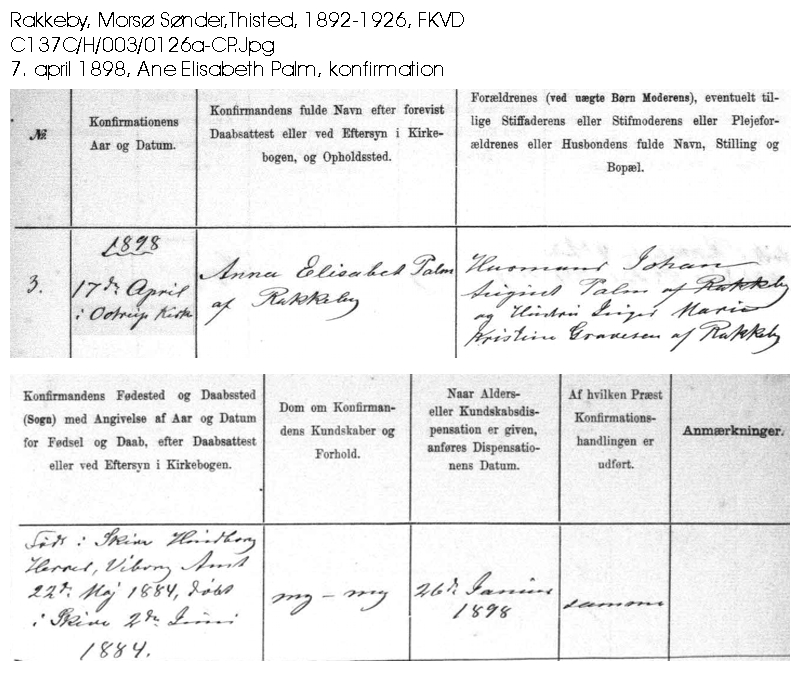 Rakkeby, Morsø Sønder,Thisted, 1892-1926, FKVD
C137C/H/003/0126a-CP.Jpg
7. april 1898, Ane Elisabeth Palm, konfirmation
№.
Konfirmationens
Aar og Datum.
Konfirmandens fulde Navn efter forevist
Daabsattest eller ved Eftersyn i Kirke-
bogen, og Opholdssted.
Forældrenes (ved uægte Børn Moderens), eventuelt til-
lige Stiffaderens eller Stifmoderens eller Plejefor-
ældrenes eller Husbondens fulde Navn, Stilling og
Bopæl.
3.
1898
17de April
i Ootrup Kirke
Anna Elisabet Palm
af Rakkeby
Husmand Johan
August Palm af Rakkeby
og Hustru Inger Marie
Kristine Gravesen af Rakkeby
Konfirmandens Fødested og Daabssted
(Sogn) med Angivelse af Aar og Datum
for Fødsel og Daab, efter Daabsattest
eller ved Eftersyn i Kirkebogen.
Dom om Konfirman-
dens Kundskaber og
Forhold.
Naar Alders-
eller Kundskabsdis-
pensation er given,
anføres Dispensatio-
nens Datum.
Af hvilken Præst
Konfirmations-
handlingen er
udført.
Anmærkninger.
Født i Skive Hindborg
Herred, Viborg Amt
22de Maj 1884, døbt
i Skive 2de Juni
1884.
mg – mg
26de Januar
1898
samme